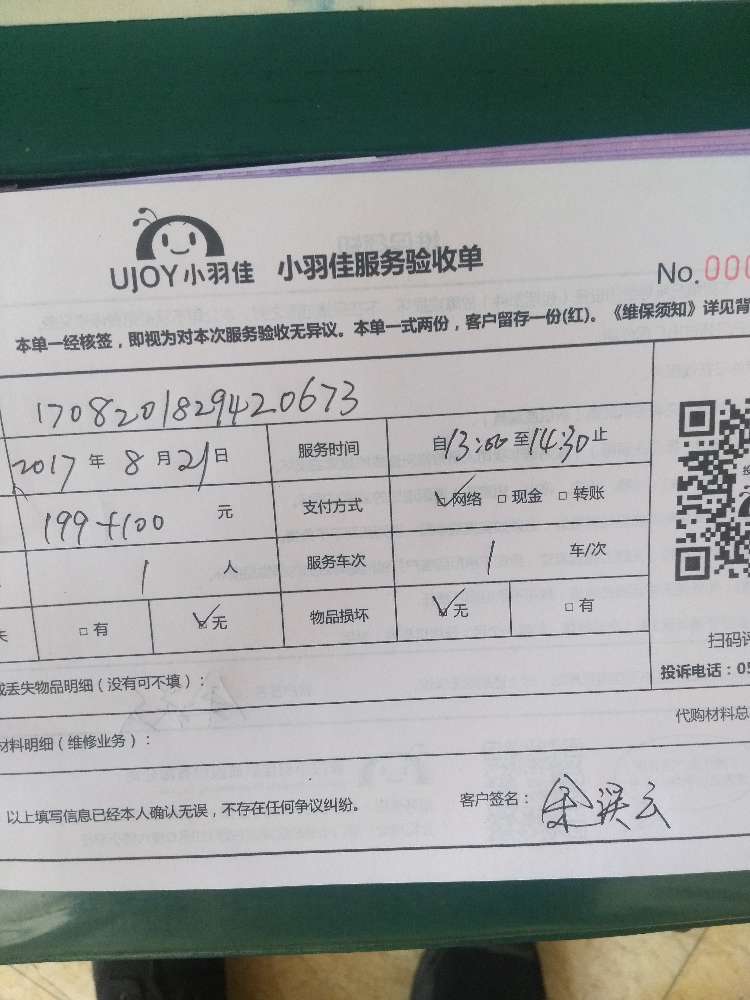 UJOY小羽佳 小羽佳服务验收单
No.000
本单一经核签，即视为对本次服务验收无异议。本单一式两份，客户留存一份(红)。《维保须知》详见背
1708201829420673
2017 年 8 月 21 日 服务时间 自13:00至14:30止
199+100 元 支付方式 ☑网络 □现金 □转账
1 人 服务车次 1 车/次
□有 ☑无 物品损坏 ☑无 □有
扫码评
丢失物品明细（没有可不填）：
投诉电话：05
材料明细（维修业务）：
代购材料总
以上填写信息已经本人确认无误，不存在任何争议纠纷。 客户签名：